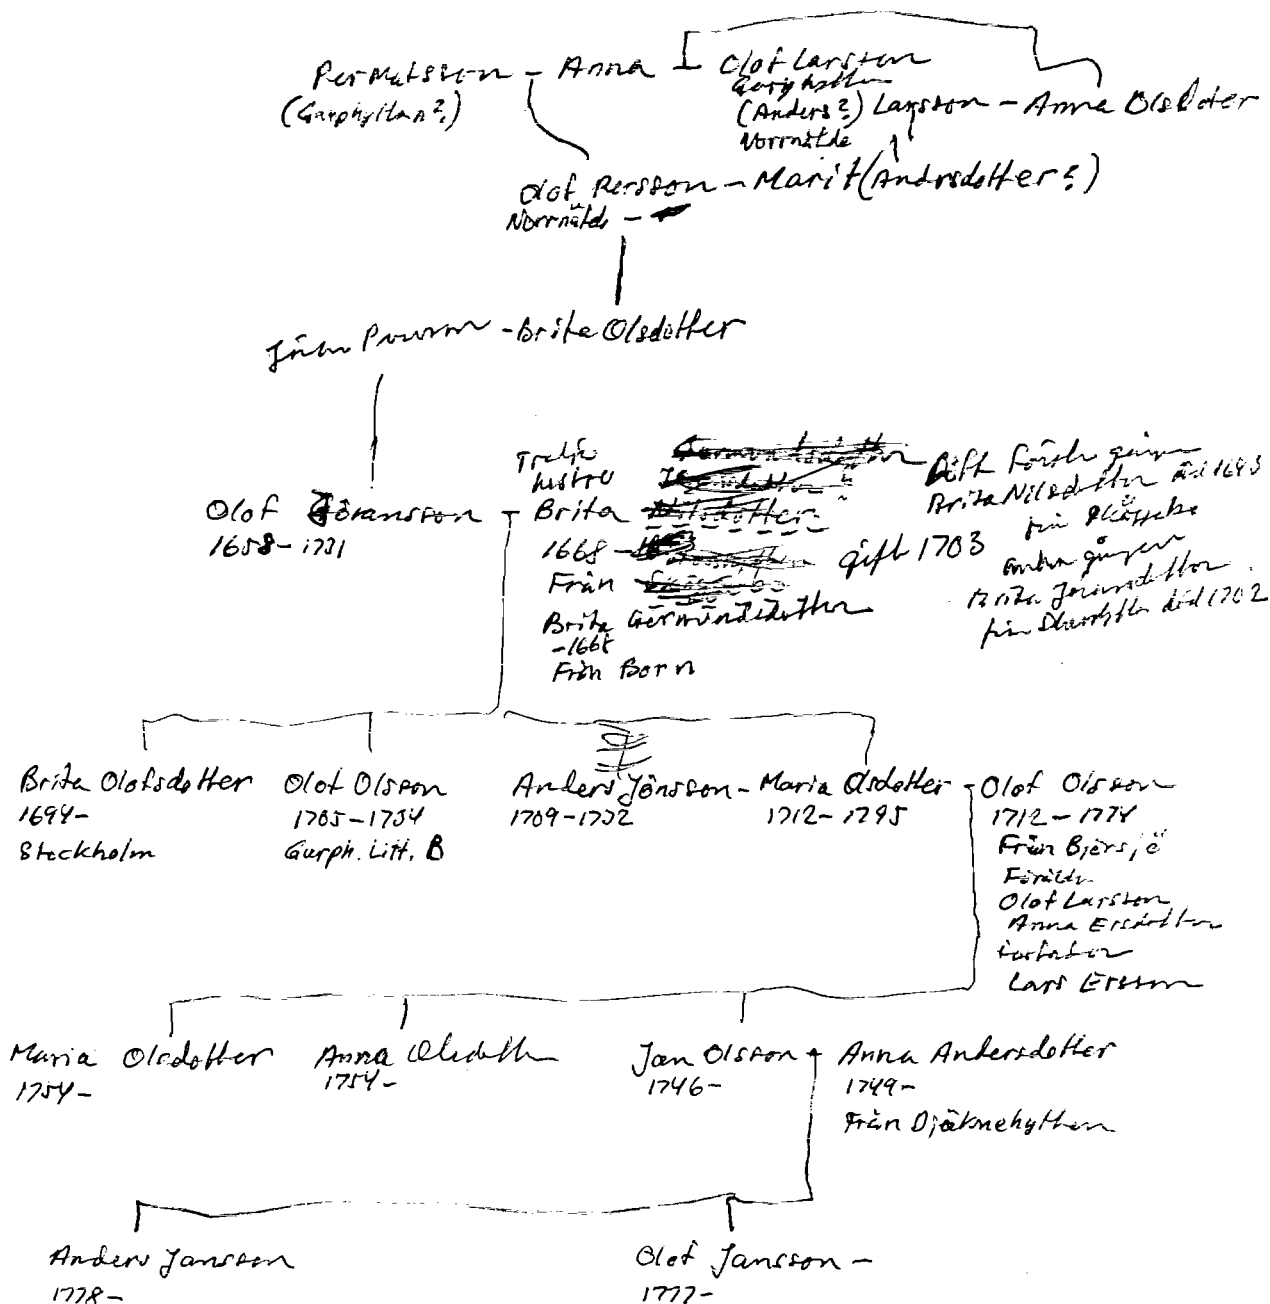 Per Matsson - Anna - Olof Larsson
(Garphyttan?)
Garphyttan
(Anders?) Larsson - Anna Olsdoter
Norrnälde
Olof Persson - Marit (Andrsdotter?)
Norrnälde -
- Brita Olsdotter
Olof Göransson - Brita
1658-1731
Tredje
hustru
1668 -
gift 1703
Från
Brita Germundsdotter
-1668
Från Born
Gift första gången
Brita Nilsdotter död 1693
andra gången
Brita Jönsdotter
död 1702
Brita Olofsdotter
1694-
Stockholm
Olof Olsson
1705-1754
Garph. Litt. B
Anders Jönsson - Maria Olsdotter - Olof Olsson
1709-1732
1712-1795
1712-1774
Från Bjørsjö
Föräldr
Olof Larsson
Anna Ersdotter
Lars Ersson
Maria Olsdotter
1754-
Anna Olsdotter
1754-
Jan Olsson - Anna Andersdotter
1746-
1749-
Från Djäknehyttan
Anders Jansson
1778-
Olof Jansson -
1777-